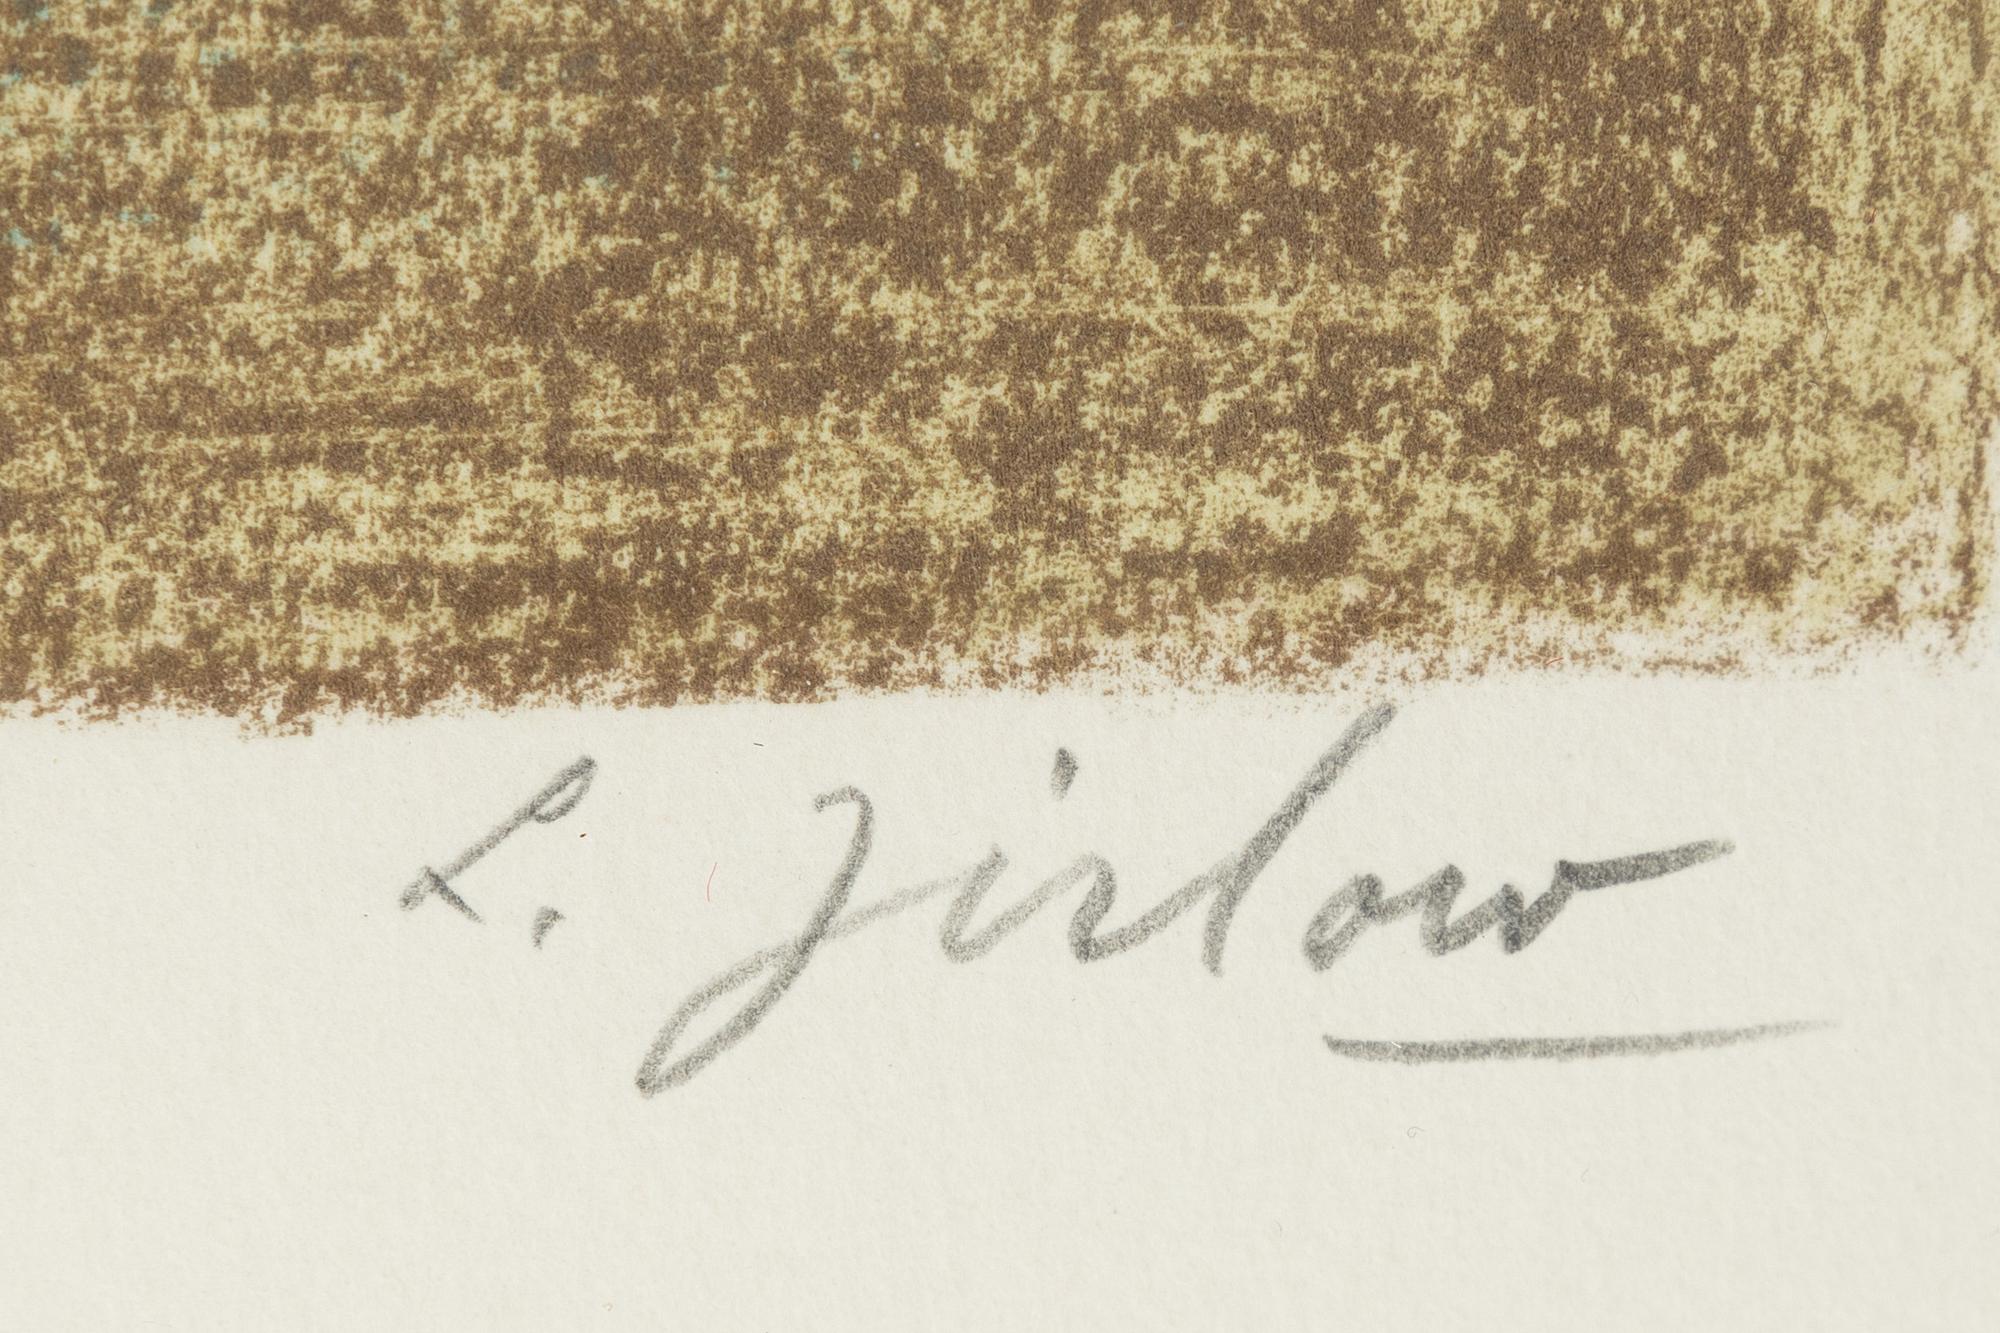 L. Jirlow